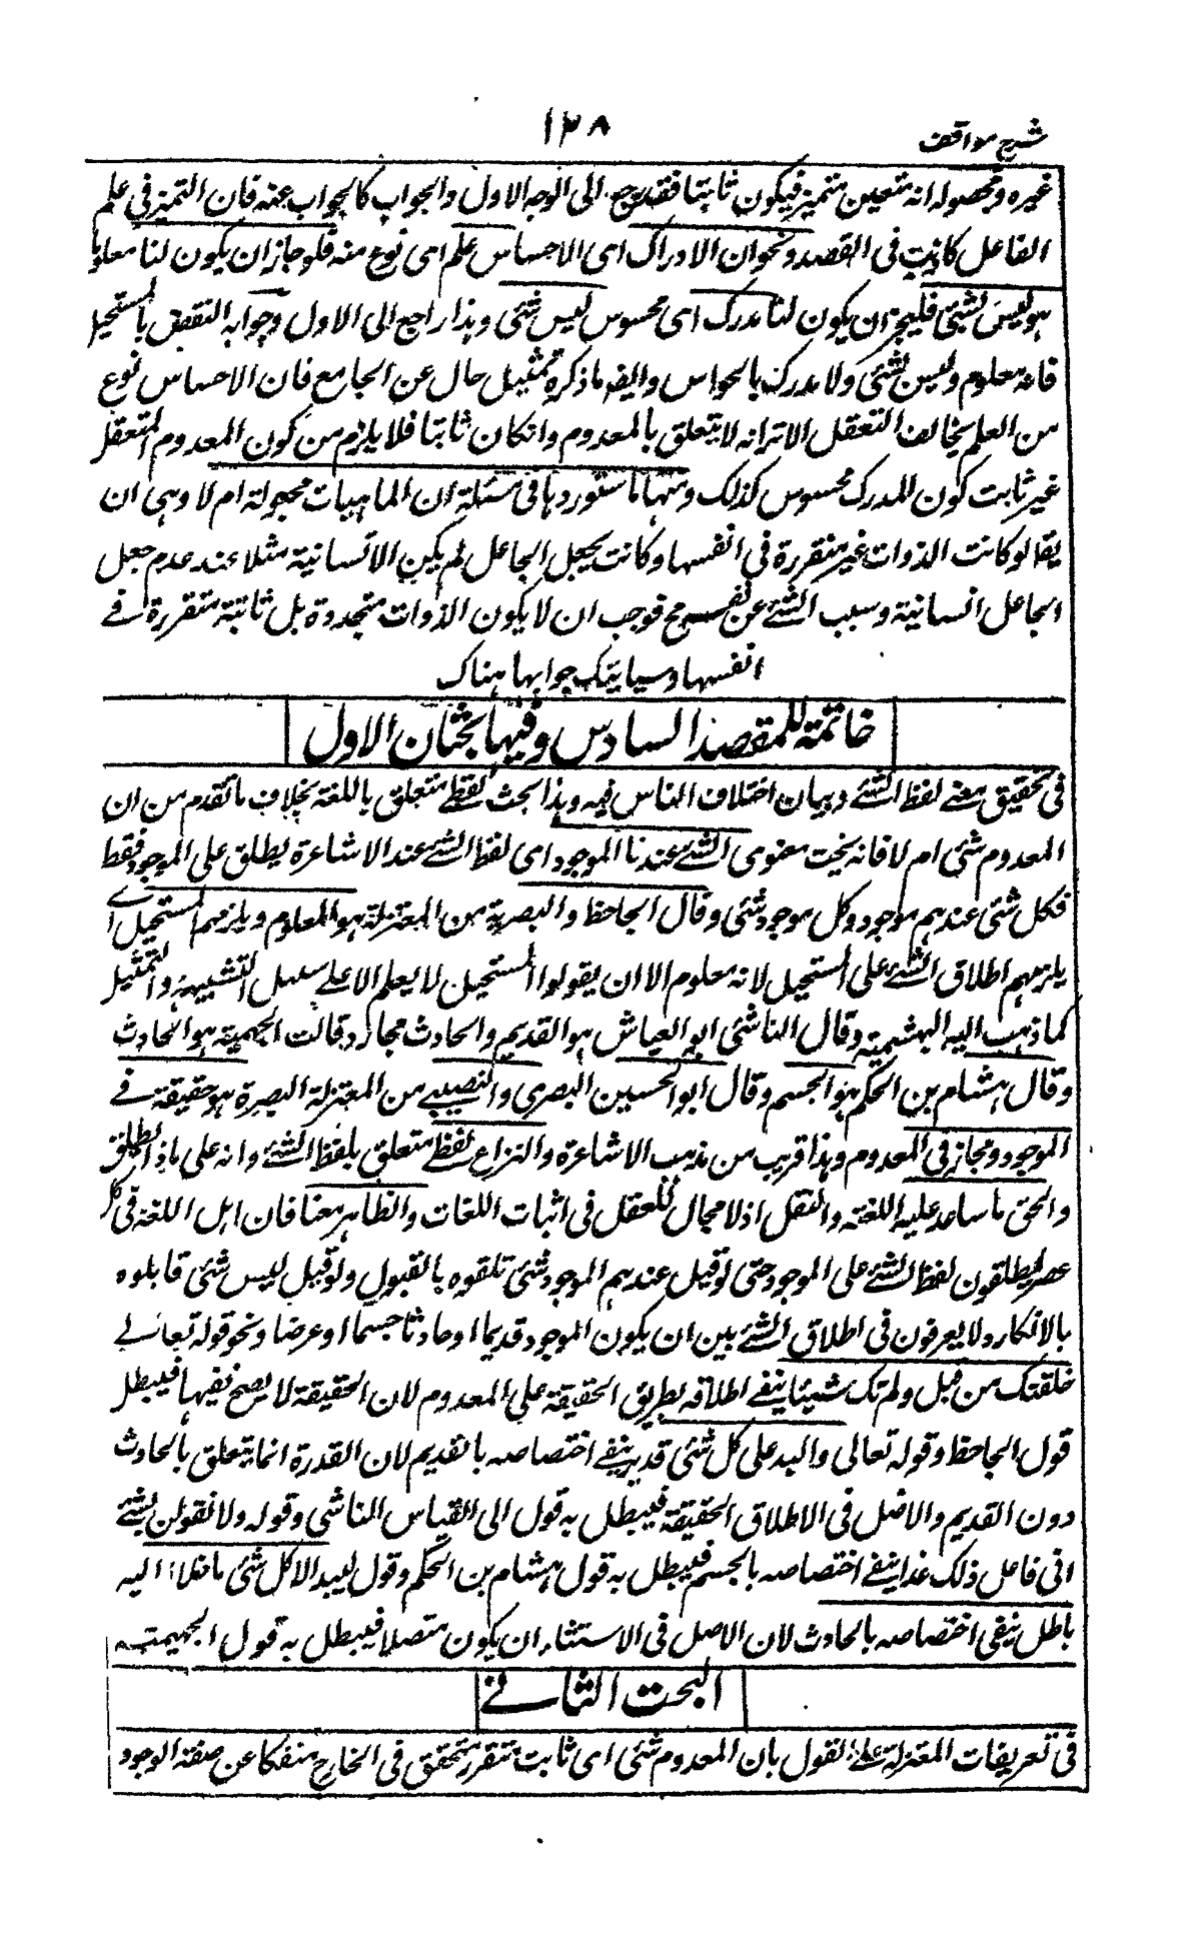 شرح مواقف
١٣٨
غيره وحصوله انه متعين متميز فيكون ثابتا فقد رجع الى الوجه الاول والجواب كالجواب عنه فان التميز فى علم
الفاعل كاف فى القصد ونحو ان الادراك اى الاحساس علم اى نوع منه فلو جاز ان يكون لنا معلوما
هو ليس بشئ فليجز ان يكون لنا مدرك اى محسوس ليس شئ وهذا راجع الى الاول وجوابه النقض بالمستحيل
فانه معلوم وليس بشئ ولا مدرك بالحواس وايضا ما ذكره تمثيل خال عن الجامع فان الاحساس نوع
من العلم يخالف التعقل الا ترى انه لا يتعلق بالمعدوم وان كان ثابتا فلا يلزم من كون المعدوم المتعقل
غير ثابت كون المدرك محسوس كذلك ومنها ما ستوردها فى مسئلة ان الماهيات مجعولة ام لا وهى ان
يقا لو كانت الذوات غير متقررة فى انفسها وكانت بجعل الجاعل لم يكن الانسانية مثلا عند عدم جعل
الجاعل انسانية وسبب الشئ عن نفسه مح فوجب ان لا يكون الذوات متجددة بل ثابتة متقررة فى
انفسها وسياتيك جوابها هناك
خاتمة للمقصد السادس وفيها بحثان الاول
فى تحقيق معنى لفظ الشئ وبيان اختلاف الناس فيه وهذا بحث لفظى متعلق باللغة بخلاف ما تقدم من ان
المعدوم شئ ام لا فانه بحث معنوى الشئ عندنا الموجود اى لفظ الشئ عند الاشاعرة يطلق على الموجود فقط
فكل شئ عندهم موجود وكل موجود شئ وقال الجاحظ والبصرية من المعتزلة هو المعلوم ويلزمهم المستحيل اى
يلزمهم اطلاق الشئ على المستحيل لانه معلوم الا ان يقولوا المستحيل لا يعلم الا على سبيل التشبيه والتمثيل
كما ذهب اليه البهشمية وقال الناشئ ابو العباس هو القديم والحادث مجاز وقالت الجهمية هو الحادث
وقال هشام بن الحكم هو الجسم وقال ابو الحسين البصرى والنصيبى من المعتزلة البصرة هو حقيقة فى
الموجود ومجاز فى المعدوم وهذا قريب من مذهب الاشاعرة والنزاع لفظى متعلق بلفظ الشئ وانه على ماذا يطلق
والحق ما ساعد عليه اللغة والنقل اذ لا مجال للعقل فى اثبات اللغات والظاهر معنا فان اهل اللغة فى كل
عصر يطلقون لفظ الشئ على الموجود حتى لو قيل عندهم الموجود شئ تلقوه بالقبول ولو قيل ليس شئ قابلوه
بالانكار ولا يعرفون فى اطلاق الشئ بين ان يكون الموجود قديما او حادثا جسما او عرضا ونحو قوله تعالى
خلقتك من قبل ولم تك شيئا ينفى اطلاقه بطريق الحقيقة على المعدوم لان الحقيقة لا يصح نفيها فيبطل
قول الجاحظ وقوله تعالى والله على كل شئ قدير ينفى اختصاصه بالقديم لان القدرة انما يتعلق بالحادث
دون القديم والاصل فى الاطلاق الحقيقة فيبطل به قول ابى القياس الناشى وقوله ولا تقولن لشئ
انى فاعل ذلك غدا ينفى اختصاصه بالجسم فيبطل به قول هشام بن الحكم وقول لبيد الا كل شئ ما خلا اليه
باطل ينفى اختصاصه بالحادث لان الاصل فى الاستثناء ان يكون متصلا فيبطل به قول الجهيمة
البحث الثانى
فى تعريفات المعتزلة على القول بان المعدوم شئ اى ثابت متقرر متحقق فى الخارج منفكا عن صفة الوجود